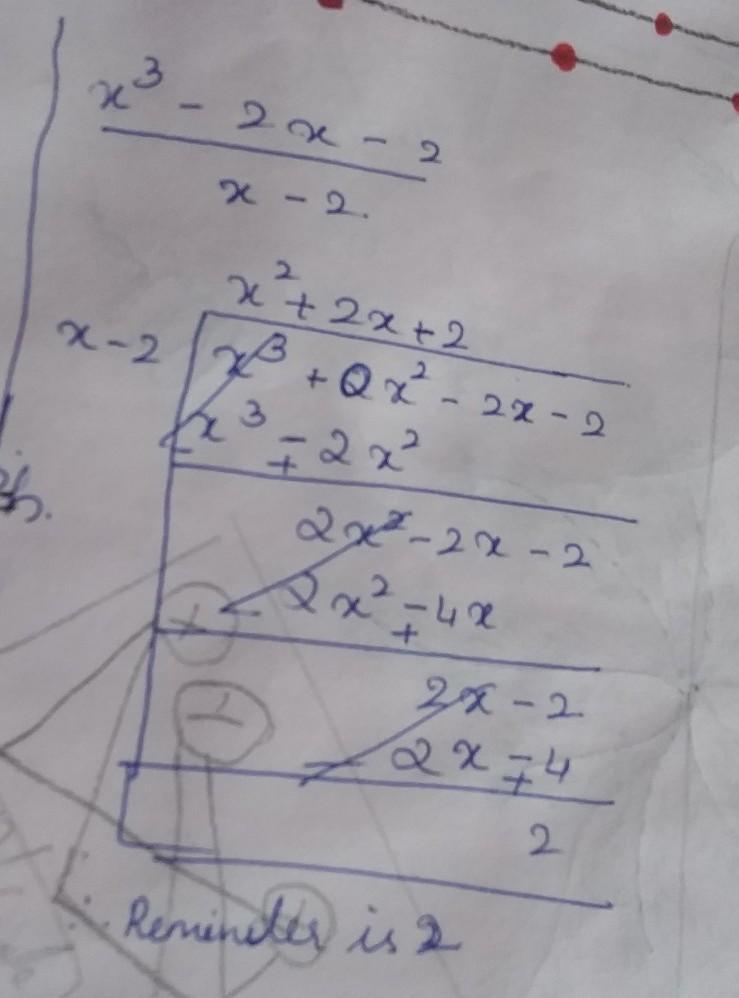 x³ - 2x - 2
x - 2.
x² + 2x + 2
x - 2
x³ + 0x² - 2x - 2
x³ - 2x²
- +
2x² - 2x - 2
2x² - 4x
- +
2x - 2
2x - 4
- +
2
∴ Reminder is 2